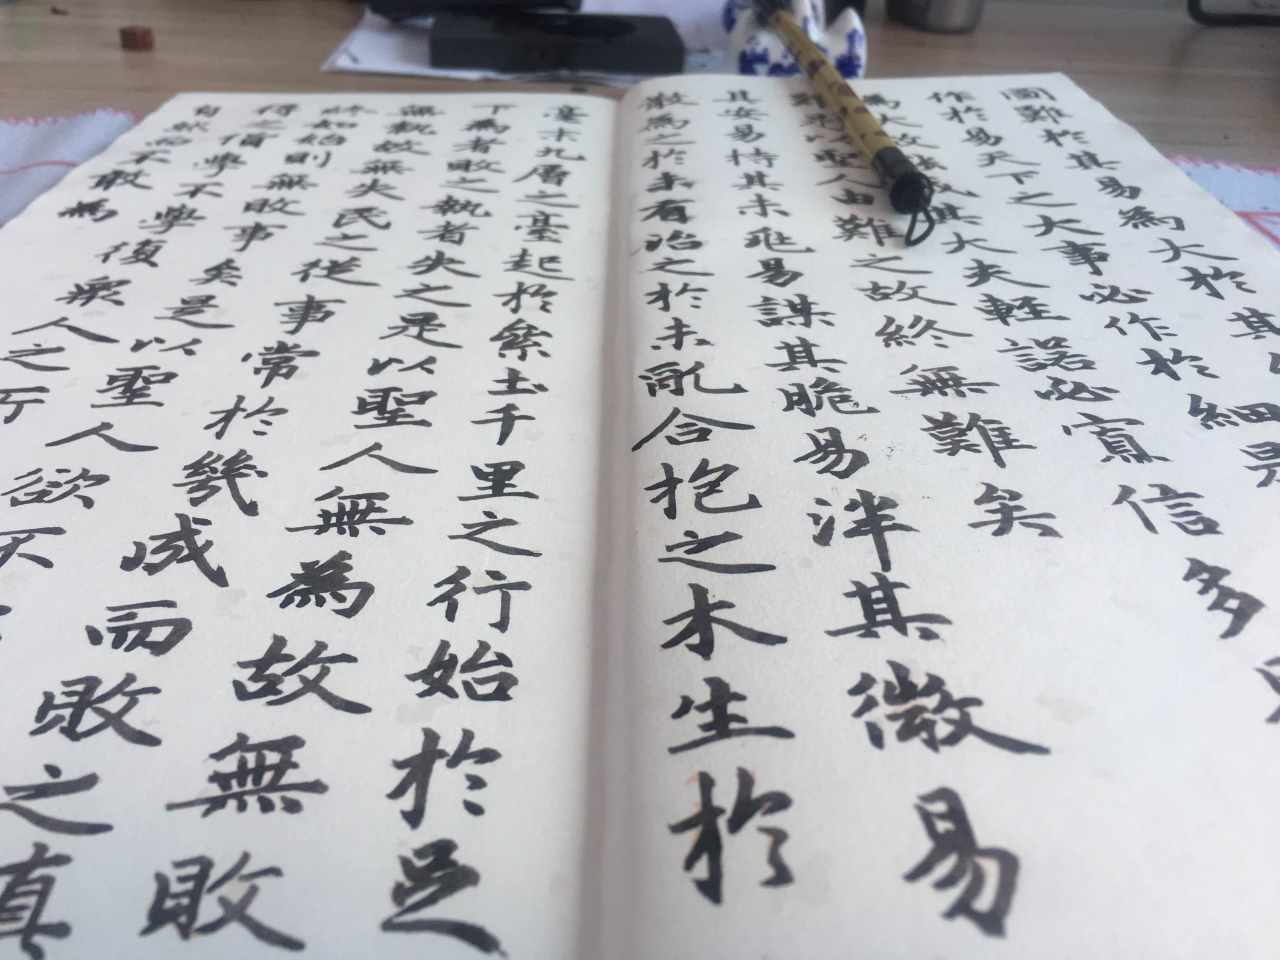 圖難於其易為大於其
作於易天下之大事必作於細是
為大故能成其大夫輕諾必寡信多
難是以聖人由難之故終無難矣
其安易持其未兆易謀其脆易泮其微易
散為之於未有治之於未亂合抱之木生於
毫末九層之臺起於絫土千里之行始於足
下為者敗之執者失之是以聖人無為故無敗
無執故無失民之從事常於幾成而敗之真
終如始則無敗事矣是以聖人欲不
得之貨學不學復眾人之所
自然而不敢為